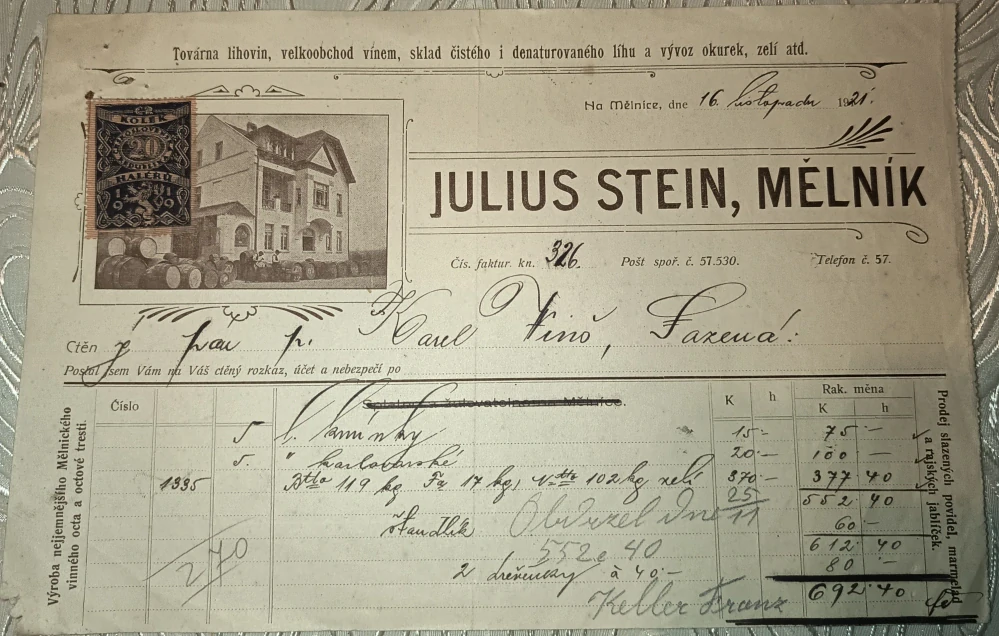 Továrna lihovin, velkoobchod vínem, sklad čistého i denaturovaného líhu a vývoz okurek, zelí atd.
Na Mělnice, dne 16. listopadu 1921.
KOLEK
20
HALÉŘŮ
1919
JULIUS STEIN, MĚLNÍK
Čís. faktur. kn. 326. Pošt spoř. č. 57.530. Telefon č. 57.
Ctěn ý pan p. Karel
Poslal jsem Vám na Váš ctěný rozkaz, účet a nebezpečí po
Výroba nejjemnějšího Mělnického vinného octa a octové tresti.
Prodej slazených povidel, marmelad a rajských jablíček.
Číslo K h Rak. měna
K h
5 l. kmínky 15·- 75 -
5. " karlovarské 20·- 100 -
1335 Btto 119 kg Fa 17 kg, Ntto 102 kg zelí 370·- 377 40
25/11 552 40
Obdržel Dne
60 -
552 40 612 40
2 à 40·- 80 -
270
Keller Franz 692·40